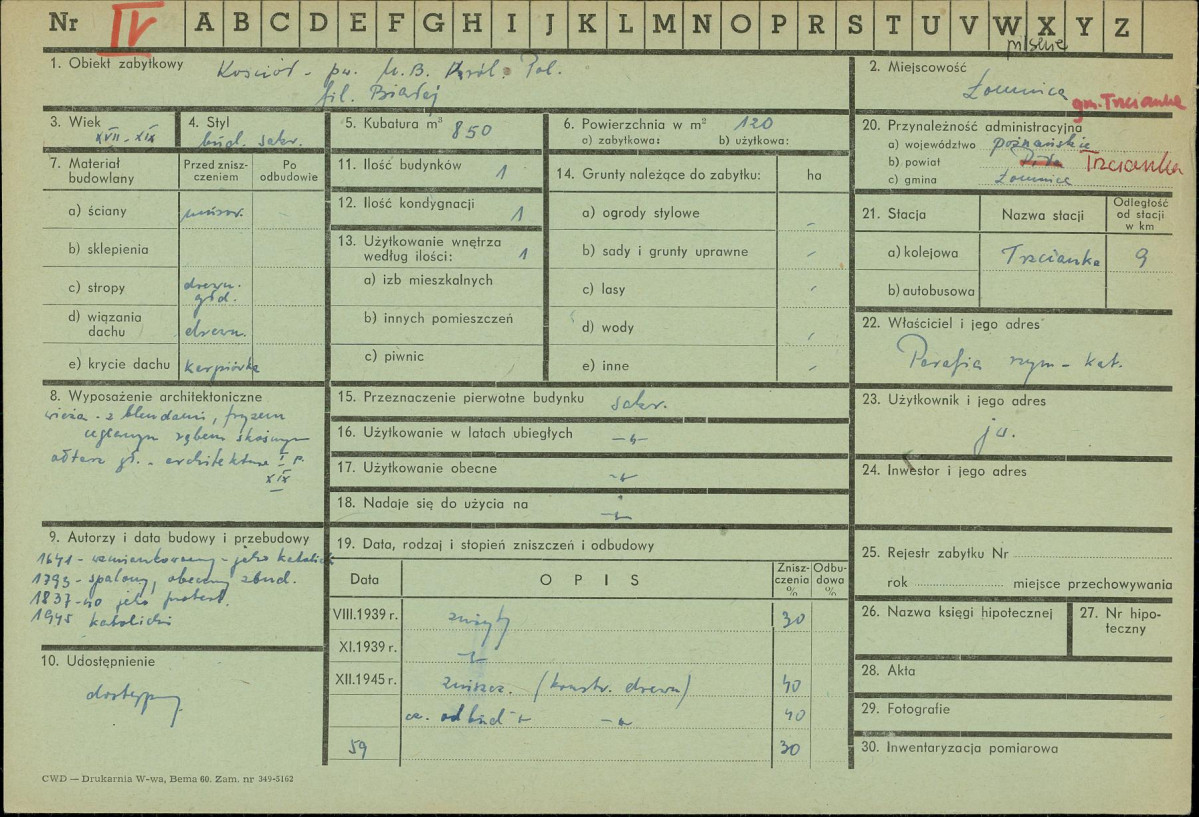 Nr IV A B C D E F G H I J K L M N O P R S T U V W X Y Z
1. Obiekt zabytkowy Kościół - pw. M.B. Król. Pol.
fil. Białej
2. Miejscowość
Łomnica gm. Trzcianka
3. Wiek
XVII - XIX
4. Styl
bud. sakr.
5. Kubatura m³ 850
6. Powierzchnia w m² 120
a) zabytkowa: b) użytkowa:
7. Materiał budowlany
Przed zniszczeniem
Po odbudowie
a) ściany murow.
b) sklepienia
c) stropy drewn.
d) wiązania dachu drewn.
e) krycie dachu karpiówka
8. Wyposażenie architektoniczne
wieża - z blendami, fryzem
ołtarz gł. - architekton. I p.
XIX
9. Autorzy i data budowy i przebudowy
1641 - wzmiankowany - jako katolicki
1793 - spalony, obecny zbud.
1837-40 jako protest.
1945 katolicki
10. Udostępnienie
dostępny
11. Ilość budynków 1
12. Ilość kondygnacji 1
13. Użytkowanie wnętrza według ilości: 1
a) izb mieszkalnych
b) innych pomieszczeń
c) piwnic
14. Grunty należące do zabytku: ha
a) ogrody stylowe -
b) sady i grunty uprawne -
c) lasy -
d) wody -
e) inne -
15. Przeznaczenie pierwotne budynku sakr.
16. Użytkowanie w latach ubiegłych -"-
17. Użytkowanie obecne -"-
18. Nadaje się do użycia na -"-
19. Data, rodzaj i stopień zniszczeń i odbudowy
Data OPIS Zniszczenia % Odbudowa %
VIII.1939 r. zużyty 30
XI.1939 r. -"-
XII.1945 r. zniszcz. (konstr. drewn) 40
40
59 30
20. Przynależność administracyjna
a) województwo poznańskie
b) powiat Trzcianka
c) gmina Łomnica
21. Stacja
Nazwa stacji
Odległość od stacji w km
a) kolejowa Trzcianka 9
b) autobusowa
22. Właściciel i jego adres
Parafia rzym-kat.
23. Użytkownik i jego adres
jw.
24. Inwestor i jego adres
25. Rejestr zabytku Nr
rok miejsce przechowywania
26. Nazwa księgi hipotecznej
27. Nr hipoteczny
28. Akta
29. Fotografie
30. Inwentaryzacja pomiarowa
CWD — Drukarnia W-wa, Bema 60. Zam. nr 349-5162